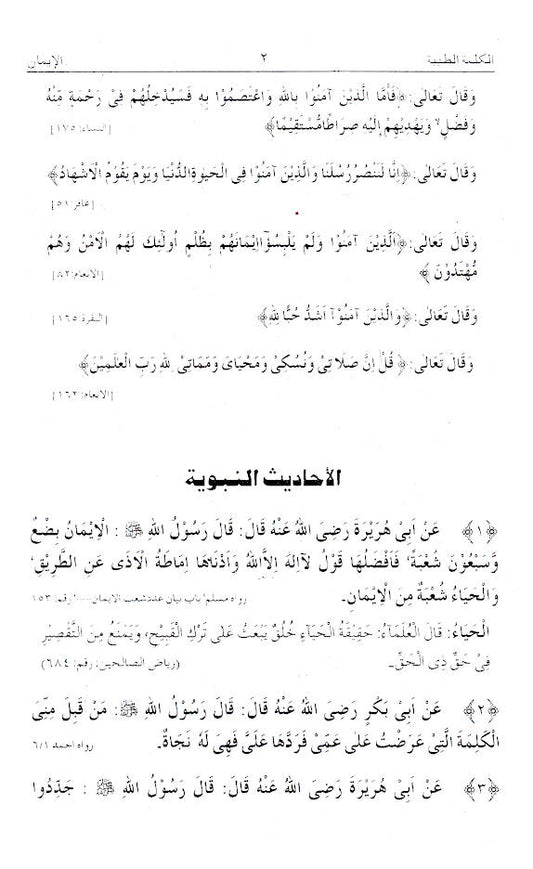 الكلمة الطيبة ٢ الإيمان
وَقَالَ تَعَالٰى: ﴿فَأَمَّا الَّذِيْنَ آمَنُوْا بِاللهِ وَاعْتَصَمُوْا بِهِ فَسَيُدْخِلُهُمْ فِىْ رَحْمَةٍ مِنْهُ
وَفَضْلٍ ۙ وَيَهْدِيْهِمْ إِلَيْهِ صِرَاطًا مُّسْتَقِيْمًا﴾ [النساء: ١٧٥]
وَقَالَ تَعَالٰى: ﴿اِنَّا لَنَنْصُرُ رُسُلَنَا وَالَّذِيْنَ آمَنُوْا فِى الْحَيٰوةِ الدُّنْيَا وَيَوْمَ يَقُوْمُ الْاَشْهَادُ﴾
[غافر: ٥١]
وَقَالَ تَعَالٰى: ﴿اَلَّذِيْنَ آمَنُوْا وَلَمْ يَلْبِسُوْا اِيْمَانَهُمْ بِظُلْمٍ اُولٰئِكَ لَهُمُ الْاَمْنُ وَهُمْ
مُّهْتَدُوْنَ﴾ [الانعام: ٨٢]
وَقَالَ تَعَالٰى: ﴿وَالَّذِيْنَ آمَنُوْآ اَشَدُّ حُبًّا لِلهِ﴾ [البقرة: ١٦٥]
وَقَالَ تَعَالٰى: ﴿قُلْ اِنَّ صَلَاتِىْ وَنُسُكِىْ وَمَحْيَاىَ وَمَمَاتِىْ لِلهِ رَبِّ الْعٰلَمِيْنَ﴾
[الانعام: ١٦٢]
الأحاديث النبوية
﴿١﴾ عَنْ اَبِىْ هُرَيْرَةَ رَضِىَ اللهُ عَنْهُ قَالَ: قَالَ رَسُوْلُ اللهِ ﷺ: الْاِيْمَانُ بِضْعٌ
وَّسَبْعُوْنَ شُعْبَةً، فَاَفْضَلُهَا قَوْلُ لَآاِلٰهَ اِلَّااللهُ وَاَدْنَاهَا اِمَاطَةُ الْاَذَى عَنِ الطَّرِيْقِ،
وَالْحَيَاءُ شُعْبَةٌ مِنَ الْاِيْمَانِ۔ رواه مسلم، باب بيان عدد شعب الايمان......، رقم: ١٥٣
الْحَيَاءُ: قَالَ الْعُلَمَاءُ: حَقِيْقَةُ الْحَيَآءِ خُلُقٌ يَبْعَثُ عَلَى تَرْكِ الْقَبِيْحِ، وَيَمْنَعُ مِنَ التَّقْصِيْرِ
فِىْ حَقِّ ذِى الْحَقِّ۔ (رياض الصالحين، رقم: ٦٨٤)
﴿٢﴾ عَنْ اَبِىْ بَكْرٍ رَضِىَ اللهُ عَنْهُ قَالَ: قَالَ رَسُوْلُ اللهِ ﷺ: مَنْ قَبِلَ مِنِّىْ
الْكَلِمَةَ الَّتِىْ عَرَضْتُ عَلَى عَمِّىْ فَرَدَّهَا عَلَىَّ فَهِىَ لَهُ نَجَاةٌ۔ رواه احمد ٦/١
﴿٣﴾ عَنْ اَبِىْ هُرَيْرَةَ رَضِىَ اللهُ عَنْهُ قَالَ: قَالَ رَسُوْلُ اللهِ ﷺ: جَدِّدُوا